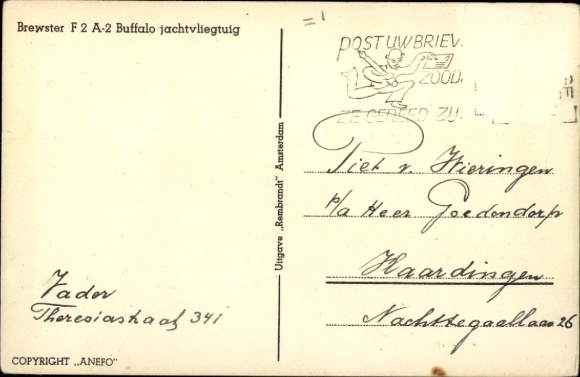 Brewster F 2 A-2 Buffalo jachtvliegtuig
POST UW BRIEV.
ZOOD.
ZE GEREED ZIJ.
Uitgave „Rembrandt" Amsterdam
Piet v. Wieringen
p/a Heer Goedendorp
Vlaardingen
Nachtegaallaan 26
Vader
Theresiastraat 341
COPYRIGHT „ANEFO"